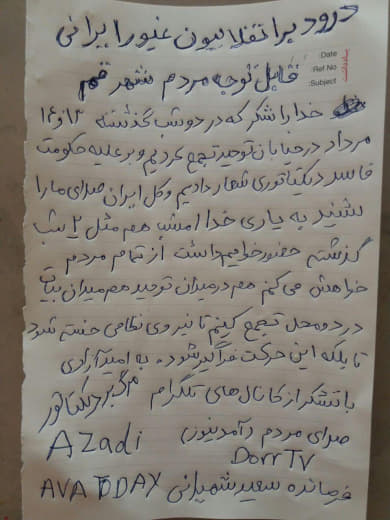 درود بر انقلابیون غیور ایرانی
یادداشت
Date:
Ref No:
Subject:
قابل توجه مردم شهر قم
خدا را شکر که در دو شب گذشته ۱۳ و ۱۴
مرداد در خیابان توحید تجمع کردیم و بر علیه حکومت
فاسد دیکتاتوری شعار دادیم و کل ایران صدای ما را
شنید به یاری خدا امشب هم مثل ۲ شب
گذشته حضور خواهیم داشت از تمام مردم
خواهش می کنم هم در میدان توحید هم میدان
در دو محل تجمع کنیم تا نیروی نظامی خسته شود
تا بلکه این حرکت فراگیر شود، به امید آزادی
مرگ بر دیکتاتور
با تشکر از کانال های تلگرام
صدای مردم آمدنیوز
Azadi
DorrTV
فرمانده سعید شمیرانی AVA TODAY